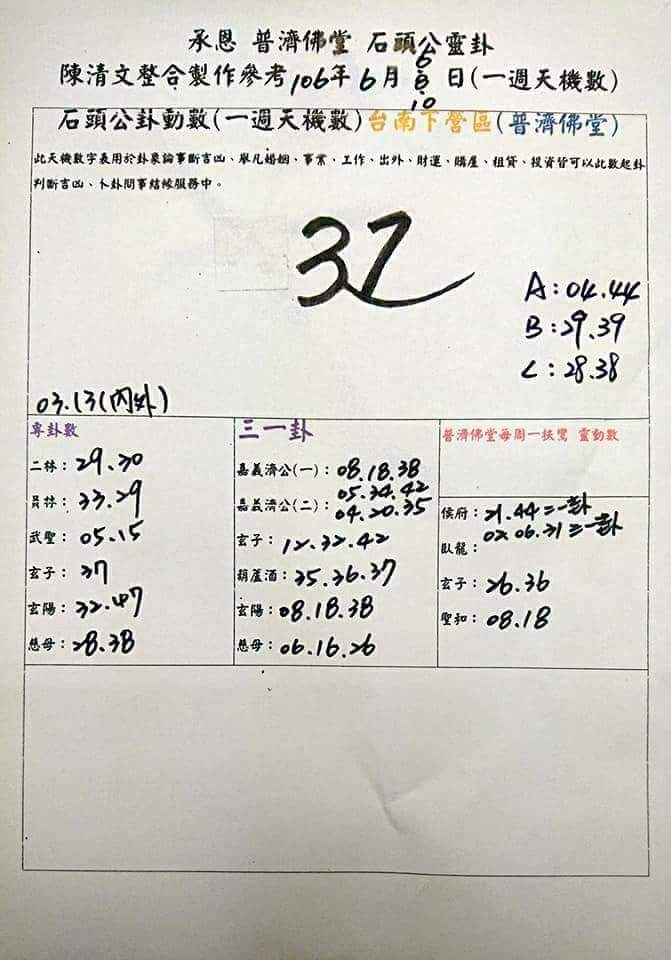 承恩 普濟佛堂 石頭公靈卦
陳清文整合製作參考106年6月6.8.10日(一週天機數)
石頭公卦動數(一週天機數)台南下營區(普濟佛堂)
此天機數字表用於卦象論事斷吉凶、舉凡婚姻、事業、工作、出外、財運、購屋、租貸、投資皆可以此數起卦
判斷吉凶、卜卦問事結緣服務中。
37
A:04.44
B:29.39
C:28.38
03.13(內外)
專卦數
二林:29.30
員林:33.29
武聖:05.15
玄子:37
玄陽:32.47
慈母:28.38
三一卦
嘉義濟公(一):08.18.38
嘉義濟公(二):05.34.42
04.20.35
玄子:12.32.42
葫蘆酒:35.36.37
玄陽:08.18.38
慈母:06.16.26
普濟佛堂每周一扶鸞 靈動數
侯府:21.44=一卦
臥龍:02.06.31=一卦
玄子:26.36
聖和:08.18